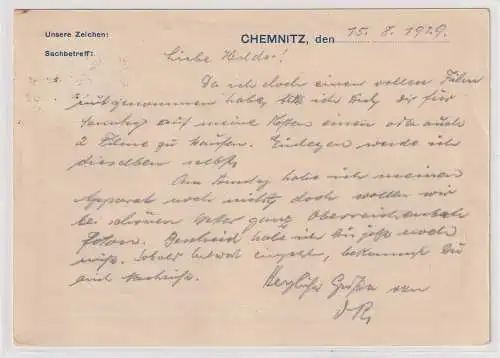 Unsere Zeichen:
CHEMNITZ, den 15. 8. 1929.
Sachbetreff:
Liebe Hilde!
Da ich doch einen vollen Film
mitgenommen habe, bitte ich Dich, Dir für
Sonntag auf meine Kosten einen oder auch
2 Filme zu kaufen. Einlegen werde ich
dieselben selbst.
Am Sonntag habe ich meinen
Apparat noch nicht, doch wollen wir
bei schönem Wetter ganz
. Bescheid habe ich bis jetzt noch
nicht. Sobald Antwort eingeht, bekommst Du
auch Nachricht.
Herzliche Grüße von